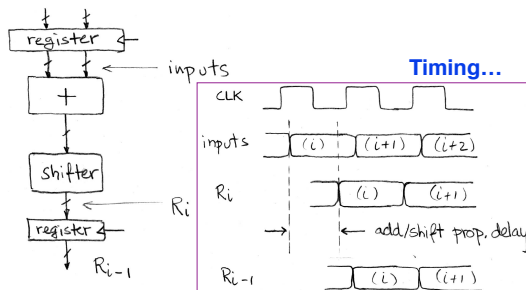 register
inputs
+
shifter
Ri
register
Ri-1
Timing...
CLK
inputs (i) (i+1) (i+2)
Ri (i) (i+1)
add/shift prop. delay
Ri-1 (i) (i+1)